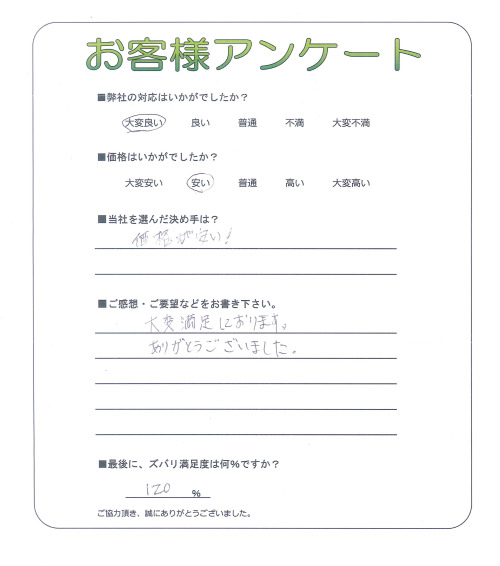 お客様アンケート
■弊社の対応はいかがでしたか？
大変良い 良い 普通 不満 大変不満
■価格はいかがでしたか？
大変安い 安い 普通 高い 大変高い
■当社を選んだ決め手は？
価格が安い！
■ご感想・ご要望などをお書き下さい。
大変満足しております。
ありがとうございました。
■最後に、ズバリ満足度は何%ですか？
120 %
ご協力頂き、誠にありがとうございました。